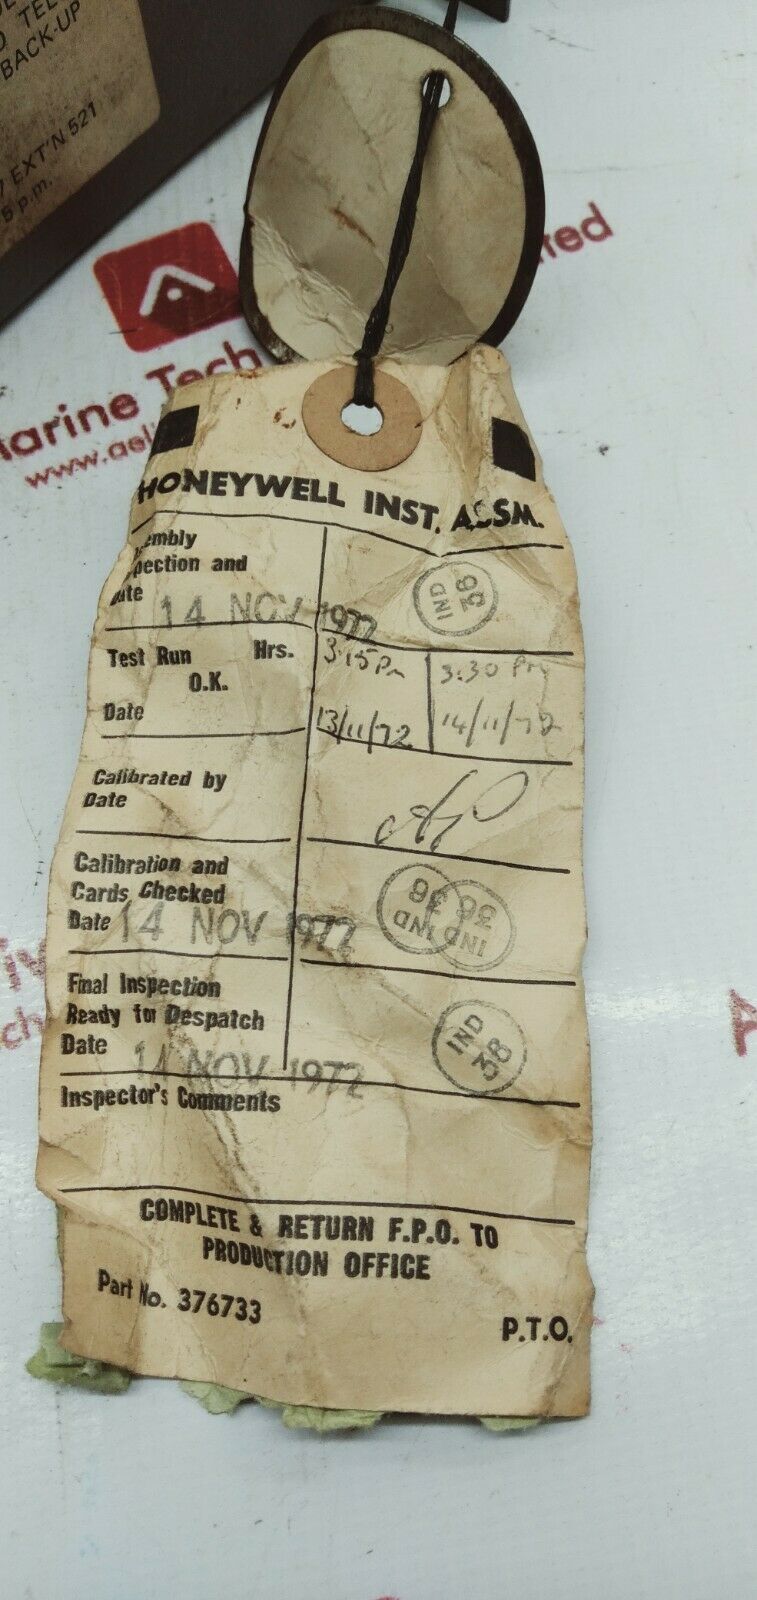 BACK-UP
EXT'N 521
5 p.m.
arine Tech
www.aeli
HONEYWELL INST. ASSM.
embly
pection and
ate
14 NOV 1972
IND 38
Test Run Hrs.
O.K.
3.15 Pm
3.30 Pm
Date
13/11/72
14/11/72
Calibrated by
Date
Calibration and
Cards Checked
Date 14 NOV 1972
IND
IND
Final Inspection
Ready for Despatch
Date 14 NOV 1972
IND 38
Inspector's Comments
COMPLETE & RETURN F.P.O. TO
PRODUCTION OFFICE
Part No. 376733
P.T.O.